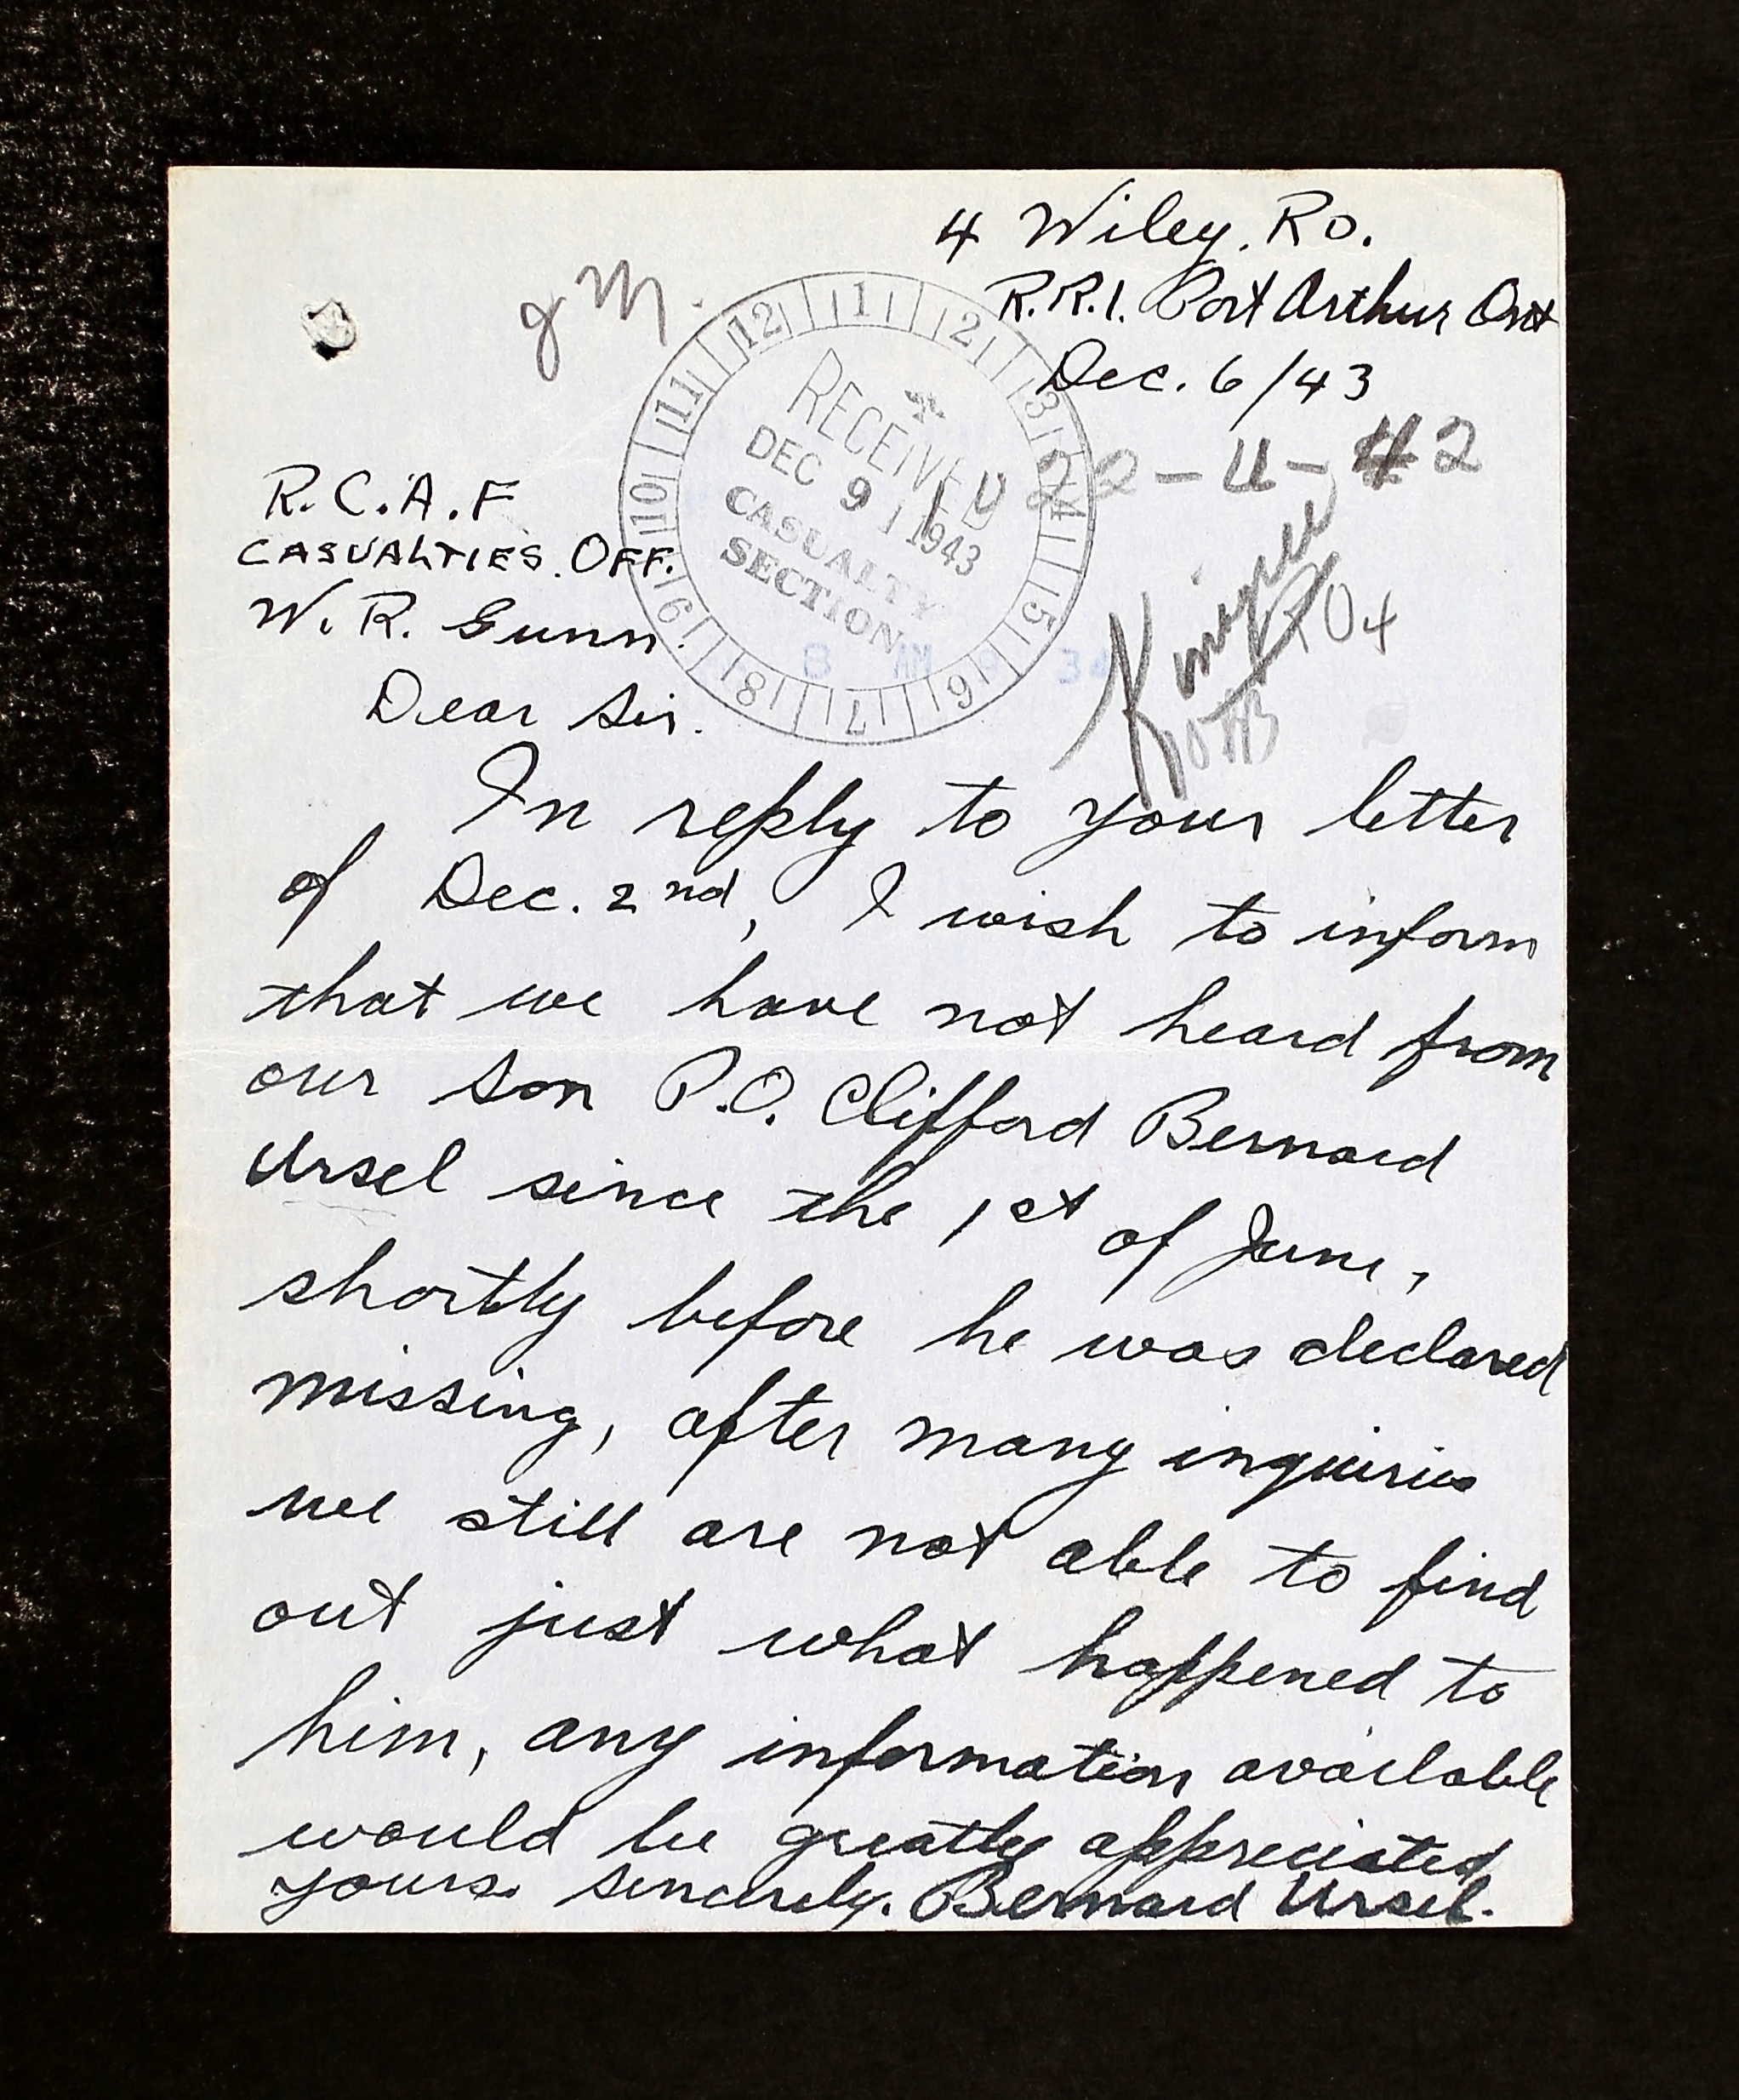 4 Wiley. Rd.
R.R.1. Port Arthur Ont
Dec. 6/43
J M.
12 1 2 3 4 5 6 7 8 9 10 11
RECEIVED
DEC 9 1943
CASUALTY
SECTION
22-U-42
R.C.A.F
CASUALTIES. OFF.
W. R. Gunn.
Dear Sir.
In reply to your letter
of Dec. 2nd, I wish to inform
that we have not heard from
our son P.O. Clifford Bernard
Ursel since the 1st of June,
shortly before he was declared
missing, after many inquiries
we still are not able to find
out just what happened to
him, any information available
would be greatly appreciated
yours sincerely. Bernard Ursel.